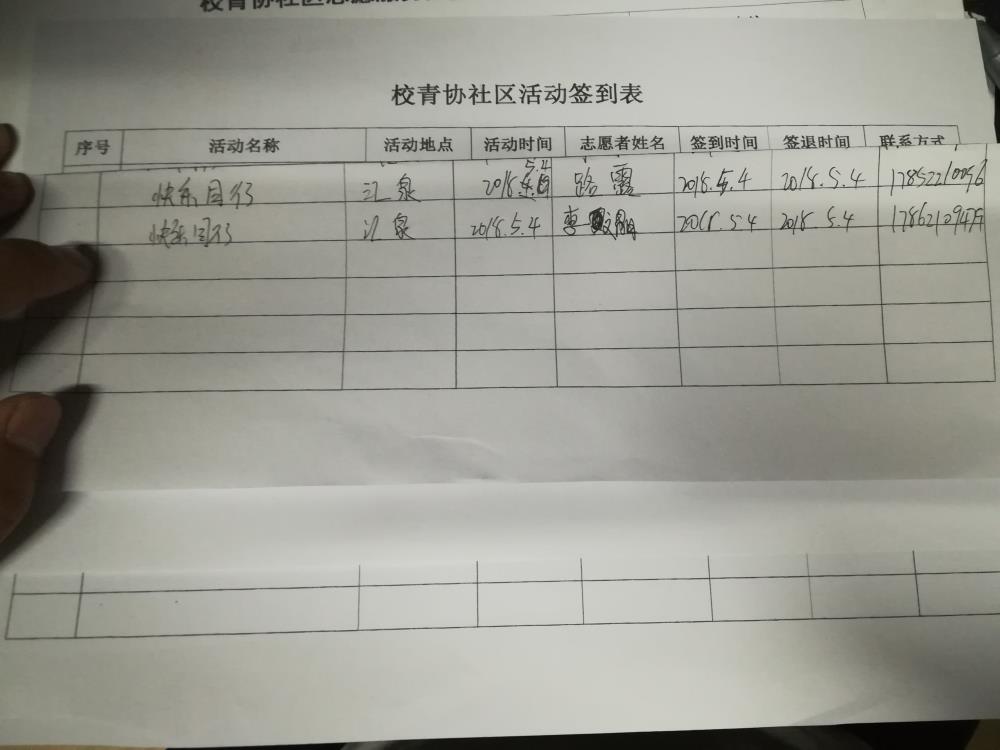 校青协社区活动签到表
序号 活动名称 活动地点 活动时间 志愿者姓名 签到时间 签退时间 联系方式
5.4
快乐同行 汇泉 2018. 路露 2018.5.4 2018.5.4 17852210096
快乐同行 汇泉 2018.5.4 李 2018.5.4 2018.5.4